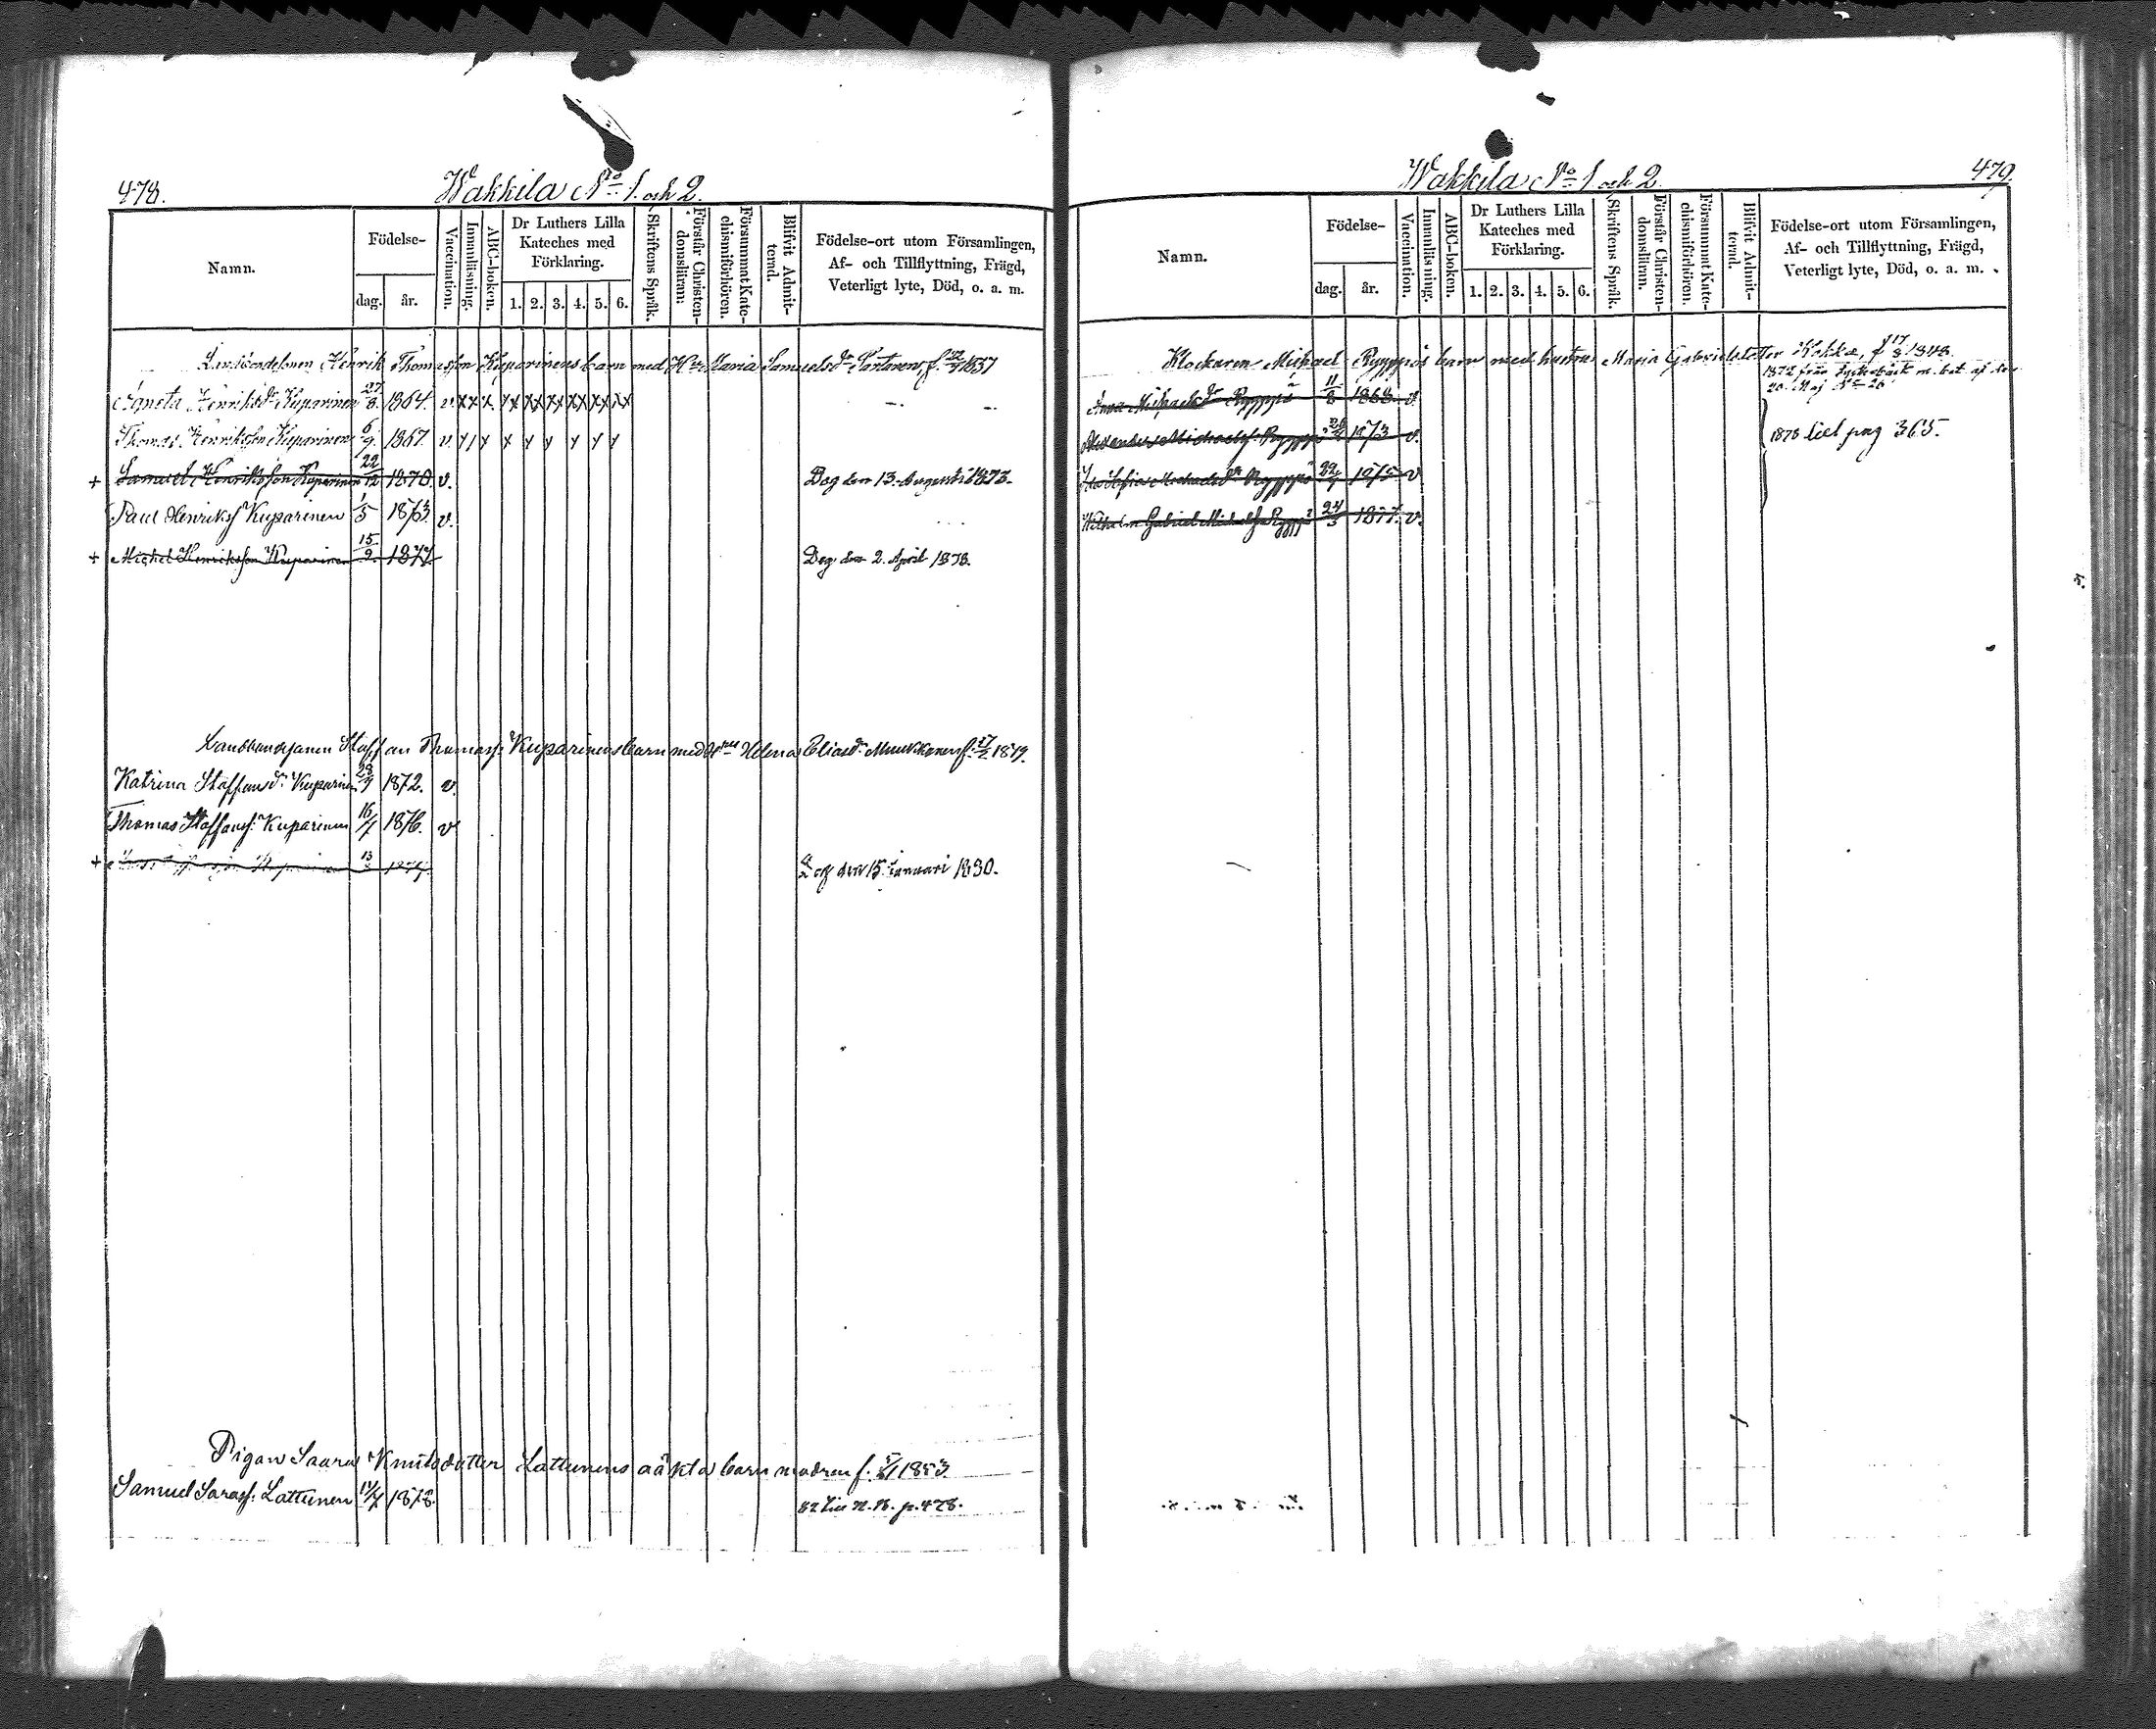 478.
Wakkila No 1. och 2.
Namn.
Födelse-
dag.
år.
Vaccination.
Innanläsning.
ABC-boken.
Dr Luthers Lilla
Kateches med
Förklaring.
1. 2. 3. 4. 5. 6.
Skriftens Språk.
Förstår Christen-
domsläran.
Försummat Kate-
chismiförhören.
Blifvit Admit-
terad.
Födelse-ort utom Församlingen,
Af- och Tillflyttning, Frägd,
Veterligt lyte, Död, o. a. m.
Henrik Thomasson Kuparinens barn med Maria Samuelsdr f. 1837
Agneta Henriksdr Kuparinen 27/8 1864. v xx x xx xx xx xx xx xx
Thomas Henriksson Kuparinen 6/9 1867. v.
+ Samuel Henriksson Kuparinen 22/12 1870 v. Dog den 13. Augusti 1873.
Paul Henrikss Kuparinen 1/5 1873 v.
+ Michel Henriksson Kuparinen 15/2 1877 Dog den 2. April 1878.
Staffan Thomass: Kuparinens barn med Helena Eliasdr f. 17/2 1849.
Katrina Staffansdr Kuparinen 1872. v.
Thomas Staffanss: Kuparinen 16/1 1876. v
+ 13 Dog den 15 januari 1880.
Pigan Saara Knutsdotter Lattunens oäkta barn modren f. 1853
Samuel Sarass: Lattunen 1878. p. 478.
479.
Wakkila No 1 och 2.
Namn.
Födelse-
dag.
år.
Vaccination.
Innanläsning.
ABC-boken.
Dr Luthers Lilla
Kateches med
Förklaring.
1. 2. 3. 4. 5. 6.
Skriftens Språk.
Förstår Christen-
domsläran.
Försummat Kate-
chismiförhören.
Blifvit Admit-
terad.
Födelse-ort utom Församlingen,
Af- och Tillflyttning, Frägd,
Veterligt lyte, Död, o. a. m.
Klockaren Michael Ryyppös barn med hustru Maria Gabrielsdotter Kokko, f 17/8 1848.
1872 från m. bet. af den
20. Maj No 26
Anna Michaelsdr Ryyppö 11/8 1868 v.
Alexander Michaelss: Ryyppö 1873 v.
1878 till pag 365.
Michaelsdr Ryyppö 1875 v
Wilhelm Gabriel Ryyppö 24/3 1877. v.